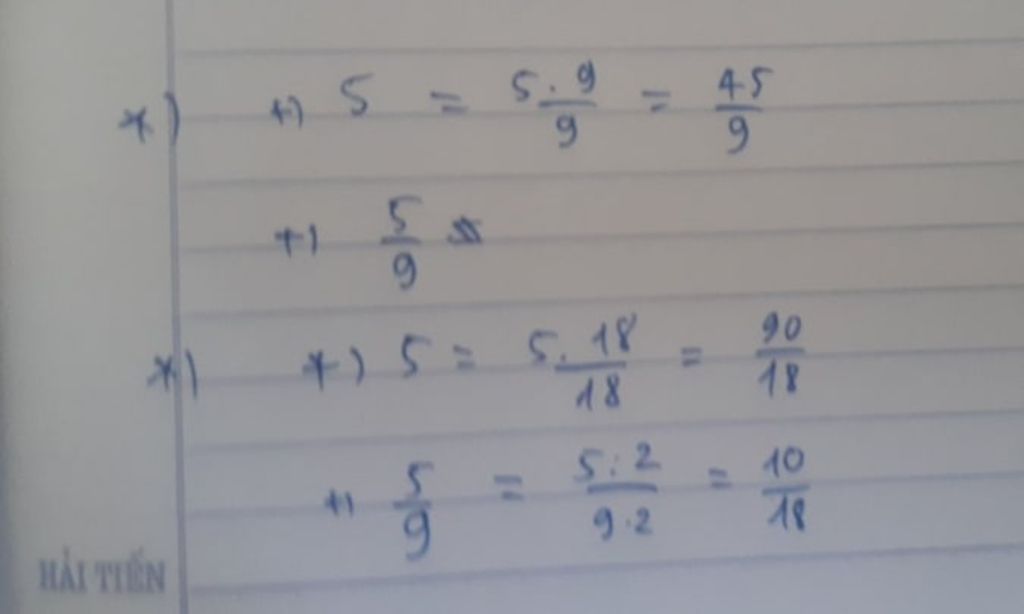 *) +) 5 = 5.9/9 = 45/9
+) 5/9
*) *) 5 = 5.18/18 = 90/18
+) 5/9 = 5:2/9.2 = 10/18
HẢI TIẾN